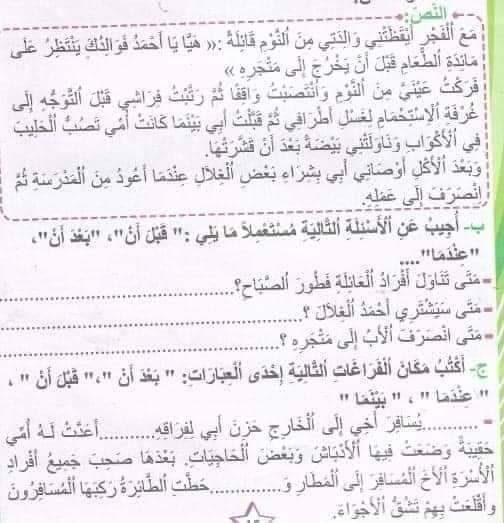 النَّص:
مَعَ الْفَجْرِ أَيْقَظَتْنِي وَالِدَتِي مِنَ النَّوْمِ قَائِلَةً :« هَيَّا يَا أَحْمَدُ فَوَالِدُكَ يَنْتَظِرُ عَلَى
مَائِدَةِ الطَّعَامِ قَبْلَ أَنْ يَخْرُجَ إِلَى مَتْجَرِهِ »
فَرَكْتُ عَيْنَيَّ مِنَ النَّوْمِ وَانْتَصَبْتُ وَاقِفًا ثُمَّ رَتَّبْتُ فِرَاشِي قَبْلَ التَّوَجُّهِ إِلَى
غُرْفَةِ الِاسْتِحْمَامِ لِغَسْلِ أَطْرَافِي ثُمَّ قَبَّلْتُ أَبِي بَيْنَمَا كَانَتْ أُمِّي تَصُبُّ الْحَلِيبَ
فِي الْأَكْوَابِ وَنَاوَلَتْنِي بَيْضَةً بَعْدَ أَنْ قَشَّرَتْهَا.
وَبَعْدَ الْأَكْلِ أَوْصَانِي أَبِي بِشِرَاءِ بَعْضِ الْغِلَالِ عِنْدَمَا أَعُودُ مِنَ الْمَدْرَسَةِ ثُمَّ
انْصَرَفَ إِلَى عَمَلِهِ.
ب- أُجِيبُ عَنِ الْأَسْئِلَةِ التَّالِيَةِ مُسْتَعْمِلًا مَا يَلِي :" قَبْلَ أَنْ"، "بَعْدَ أَنْ"،
"عِنْدَمَا"....
- مَتَى تَنَاوَلَ أَفْرَادُ الْعَائِلَةِ فَطُورَ الصَّبَاحِ؟..............................
- مَتَى سَيَشْتَرِي أَحْمَدُ الْغِلَالَ ؟..............................
- مَتَى انْصَرَفَ الْأَبُ إِلَى مَتْجَرِهِ ؟..............................
ج- أَكْتُبُ مَكَانَ الْفَرَاغَاتِ التَّالِيَةِ إِحْدَى الْعِبَارَاتِ: " بَعْدَ أَنْ "،" قَبْلَ أَنْ " ،
" عِنْدَمَا " ، " بَيْنَمَا "
- ...............يُسَافِرَ أَخِي إِلَى الْخَارِجِ حَزِنَ أَبِي لِفِرَاقِهِ...........أَعَدَّتْ لَهُ أُمِّي
حَقِيبَةً وَضَعَتْ فِيهَا الْأَدْبَاشَ وَبَعْضَ الْحَاجِيَاتِ. بَعْدَهَا صَحِبَ جَمِيعُ أَفْرَادِ
الْأُسْرَةِ الْأَخَ الْمُسَافِرَ إِلَى الْمَطَارِ وَ...............حَطَّتِ الطَّائِرَةُ رَكِبَهَا الْمُسَافِرُونَ
وَأَقْلَعَتْ بِهِمْ تَشُقُّ الْأَجْوَاءَ.